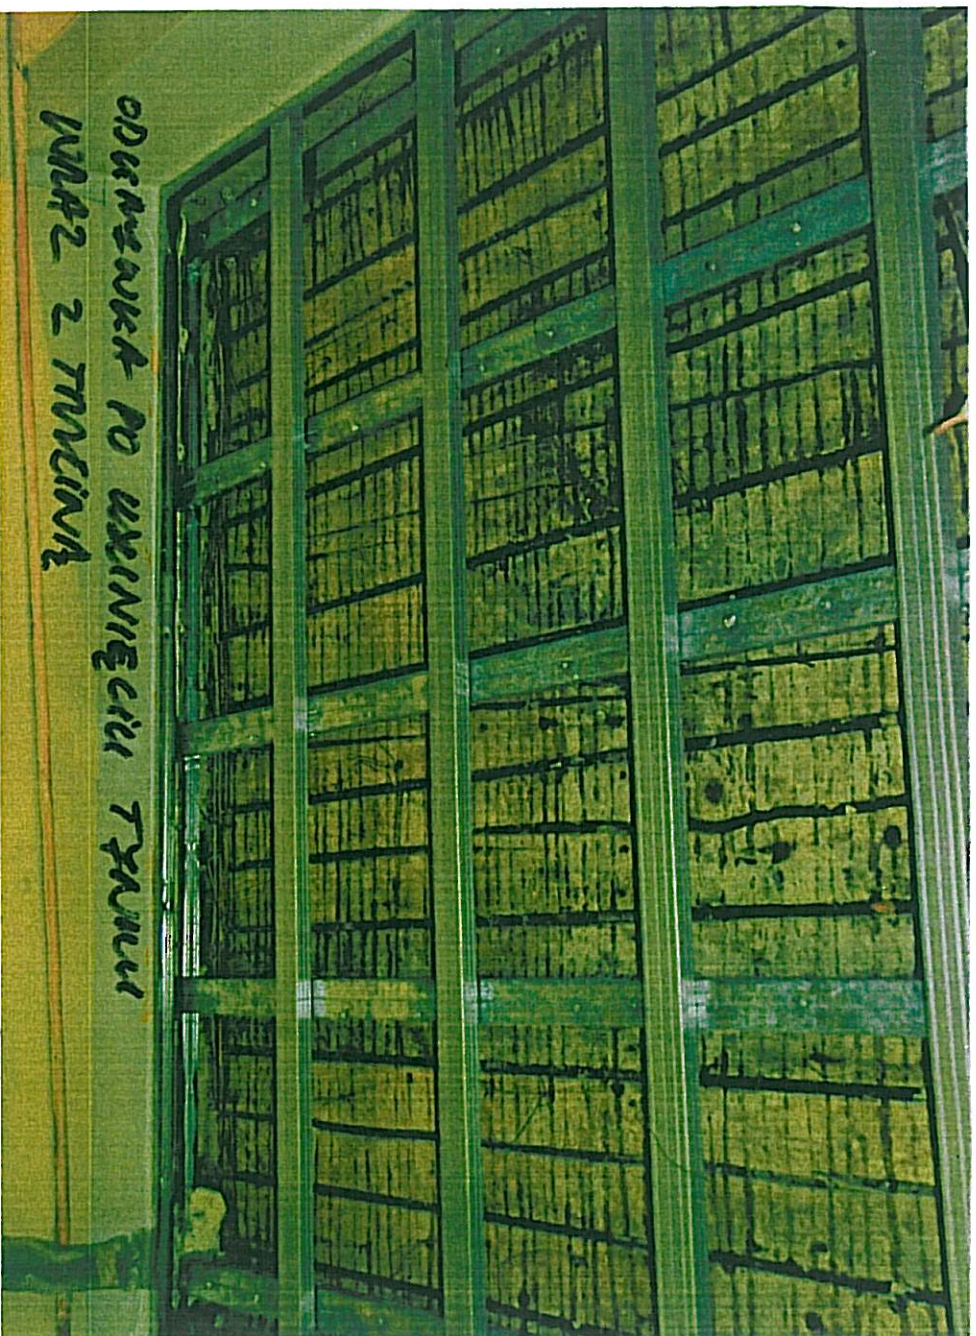 ODGRYWKA PO USUNIĘCIU TYNKU
WRAZ Z TRZCINĄ